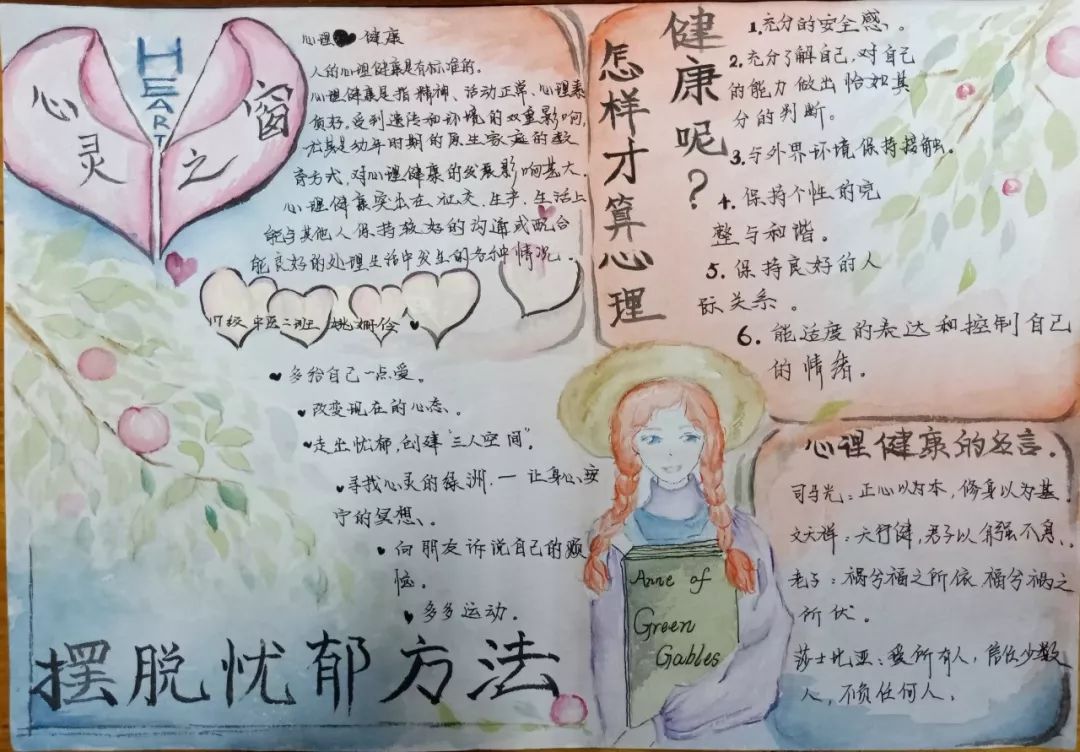 心灵之窗
HEART
心理 健康
人的心理健康是有标准的。
心理健康是指精神、活动正常、心理素
质好。受到遗传和环境的双重影响,
尤其是幼年时期的原生家庭的教
育方式,对心理健康的发展影响甚大。
心理健康突出在社交、生产、生活上
能与其他人保持较好的沟通或配合
能良好的处理生活中发生的各种情况。
17级 中医二班
多给自己一点爱。
改变现在的心态。
走出忧郁,创建"三人空间"。
寻找心灵的绿洲.一让身心安
宁的冥想、。
向朋友诉说自己的烦
恼。
多多运动.
摆脱忧郁方法
怎样才算心理
健康呢?
1.充分的安全感、。
2.充分了解自己,对自己
的能力做出恰如其
分的判断。
3.与外界环境保持接触。
4.保持个性的完
整与和谐。
5.保持良好的人
际关系。
6.能适度的表达和控制自己
的情绪。
Anne of
Green
Gables
心理健康的名言.
司马光:正心以为本,修身以为基.
文天祥:天行健,君子以自强不息、.
老子:祸兮福之所依 福兮祸之
所伏.
莎士比亚:爱所有人,信任少数
人,不负任何人.